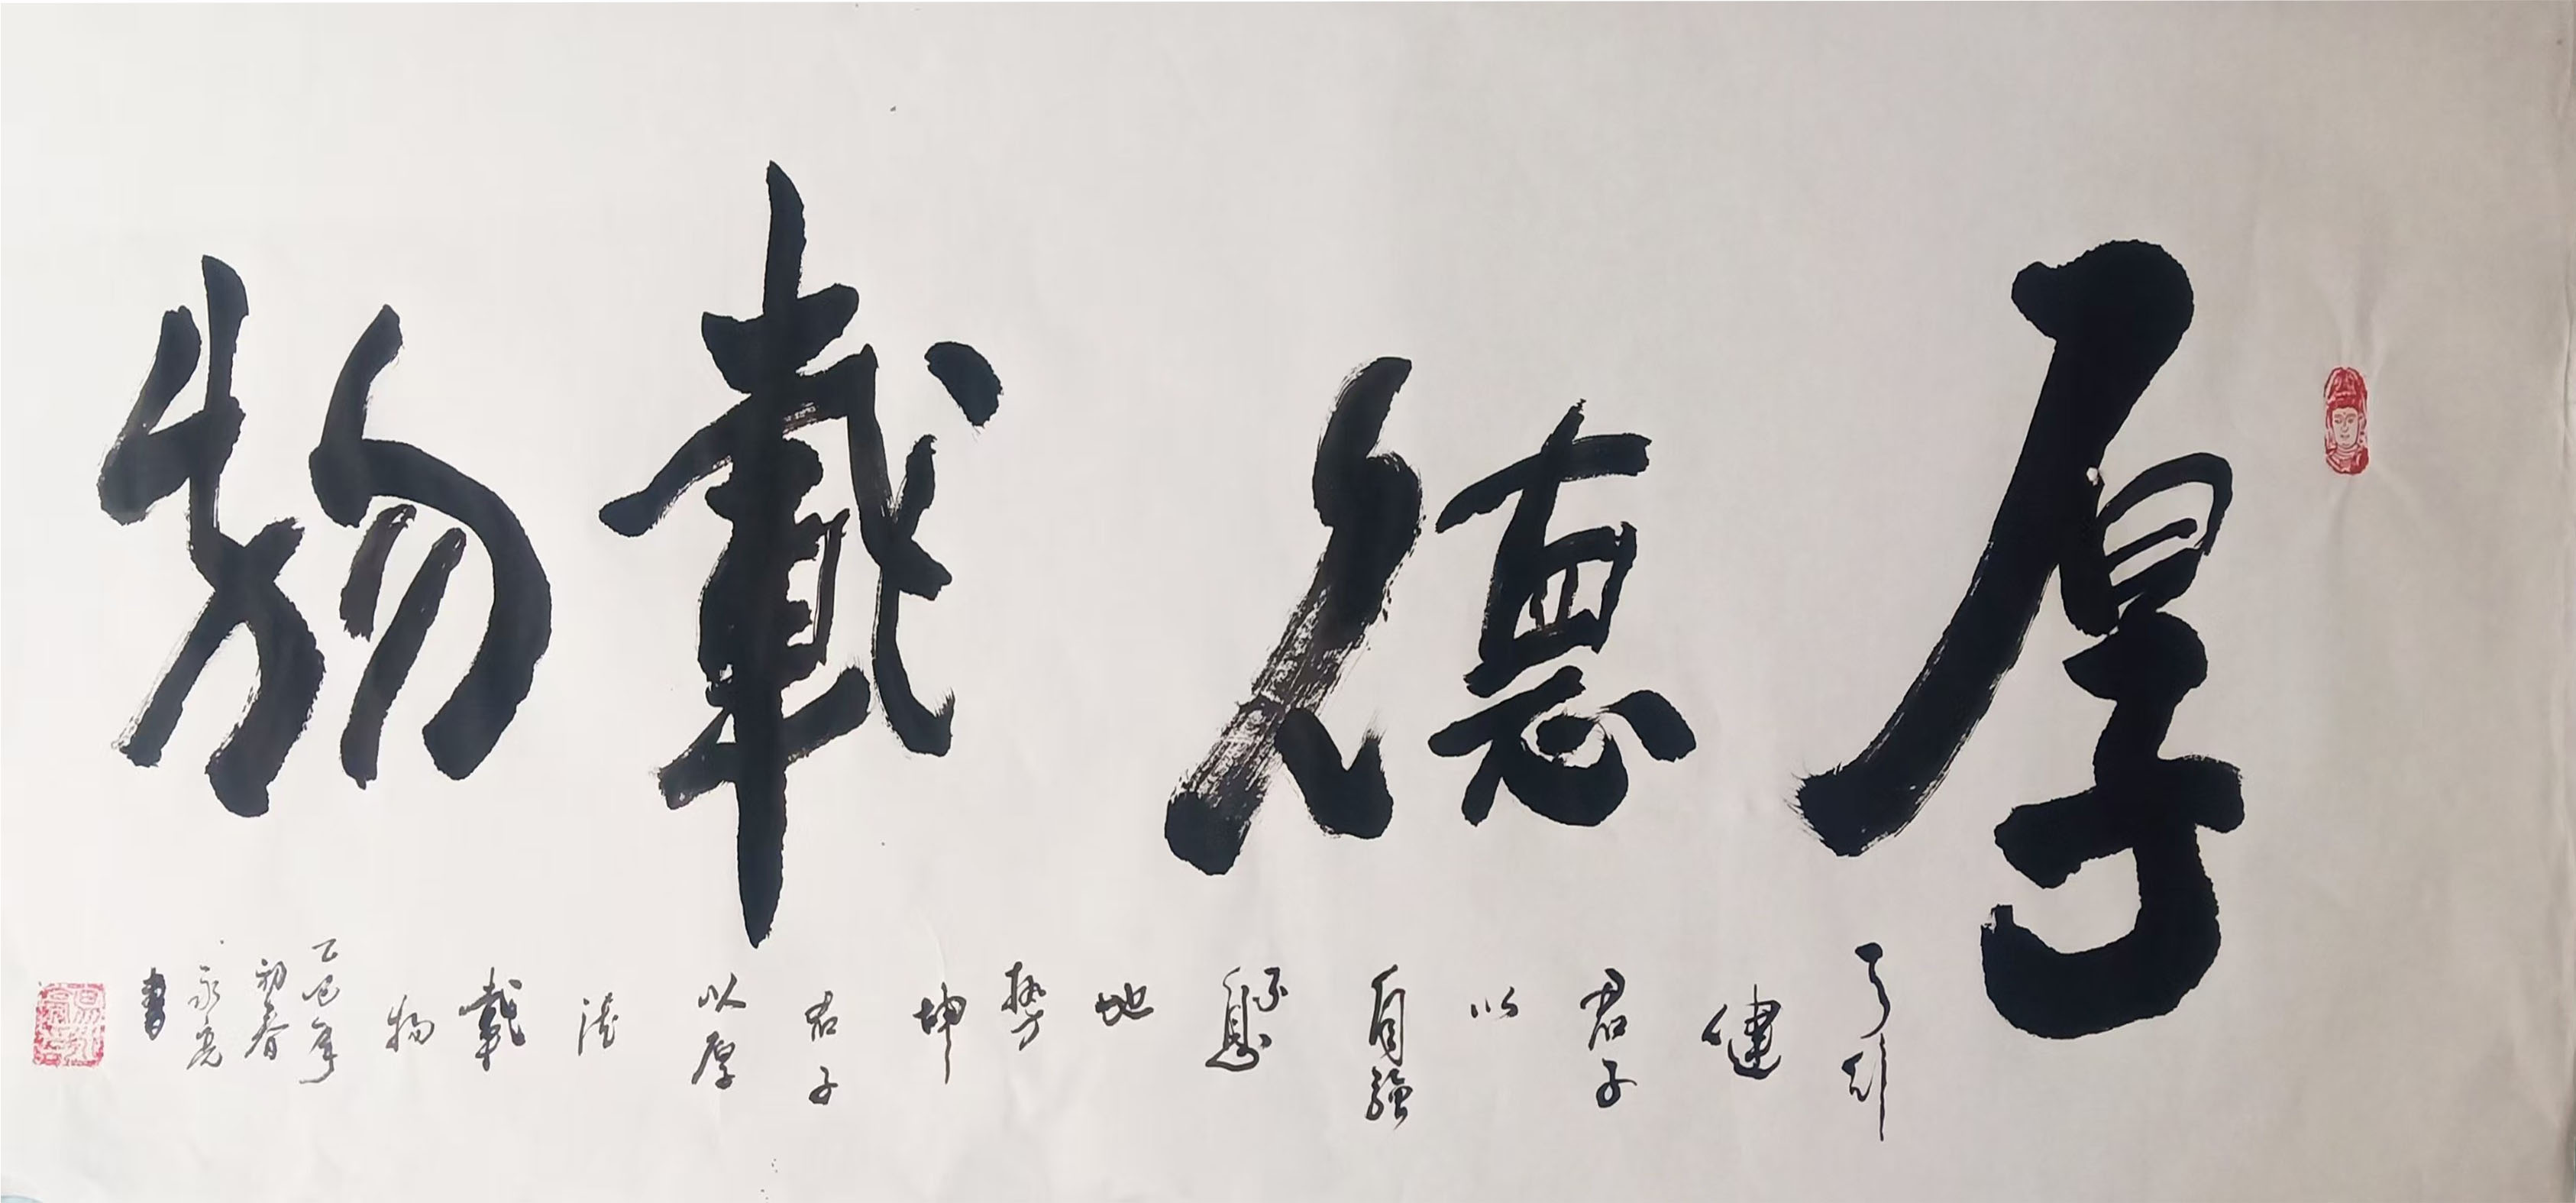 厚德載物
天行
健
君子
以
自強
不息
地
势
坤
君子
以厚
德
載
物
乙巳年
初春
永亮
書